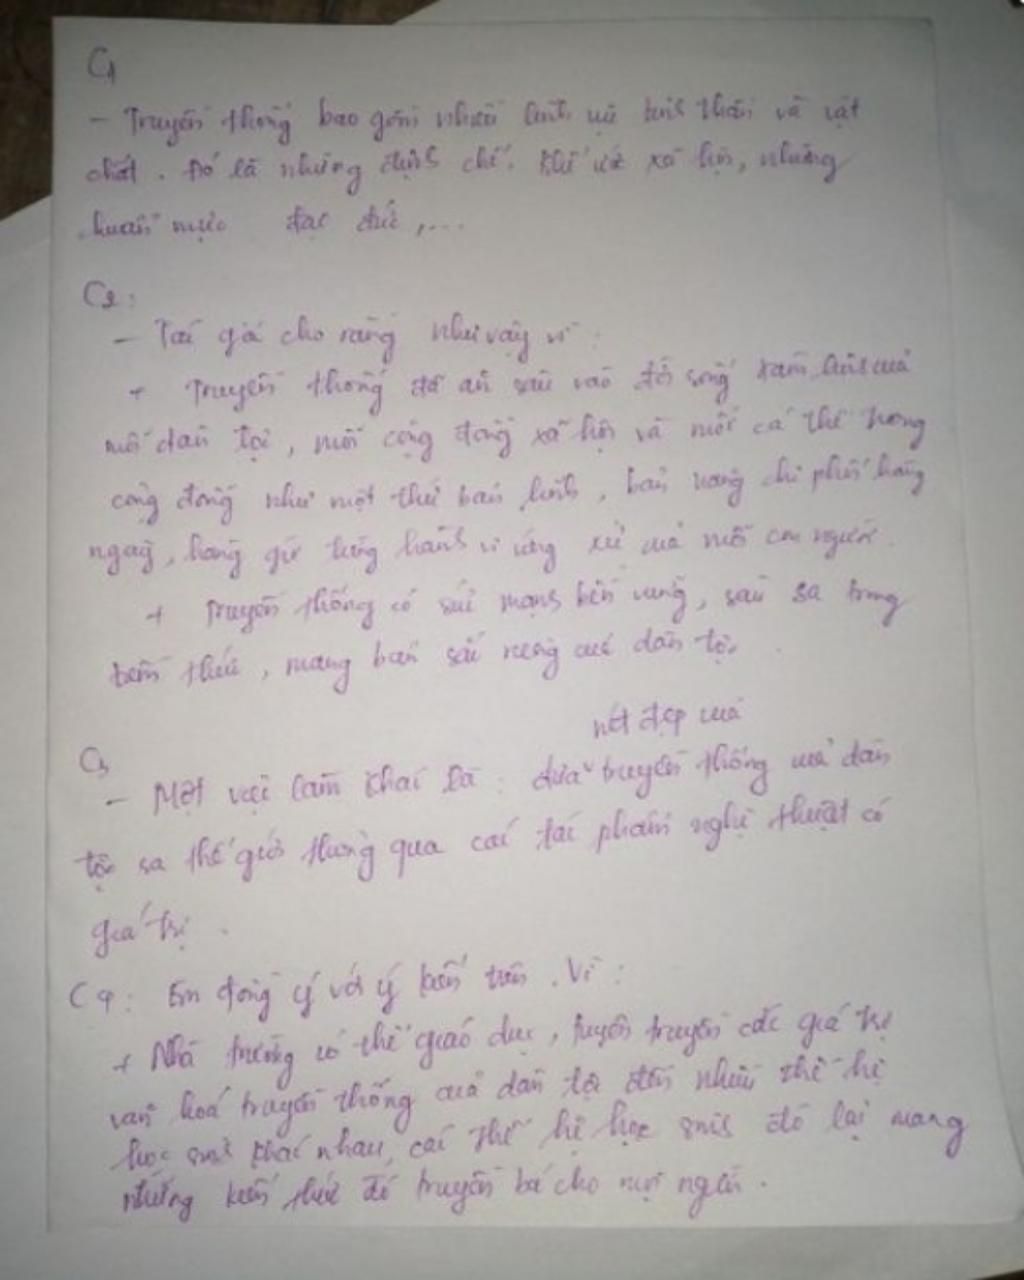 C1
- Truyền thống bao gồm nhiều lĩnh vực tinh thần và vật
chất. Đó là những định chế, xã hội, những
chuẩn mực đạo đức,...
C2:
- Tác giả cho rằng như vậy vì:
+ Truyền thống đã ăn sâu vào đời sống tâm linh của
mỗi dân tộc, mỗi cộng đồng xã hội và mỗi cá thể trong
cộng đồng như một thứ bản lĩnh, bản năng chi phối hằng
ngày, hằng giờ từng hành vi ứng xử của mỗi con người.
+ Truyền thống có sức mạnh bền vững, sâu sa trong
tiềm thức, mang bản sắc riêng của dân tộc.
C3
nét đẹp của
- Một việc làm khác là: đưa truyền thống của dân
tộc ra thế giới thông qua các tác phẩm nghệ thuật có
giá trị.
C4: Em đồng ý với ý kiến trên. Vì:
+ Nhà trường có thể giáo dục, tuyên truyền các giá trị
văn hoá truyền thống của dân tộc đến nhiều thế hệ
học sinh khác nhau, các thế hệ học sinh đó lại mang
những kiến thức đó truyền bá cho mọi người.